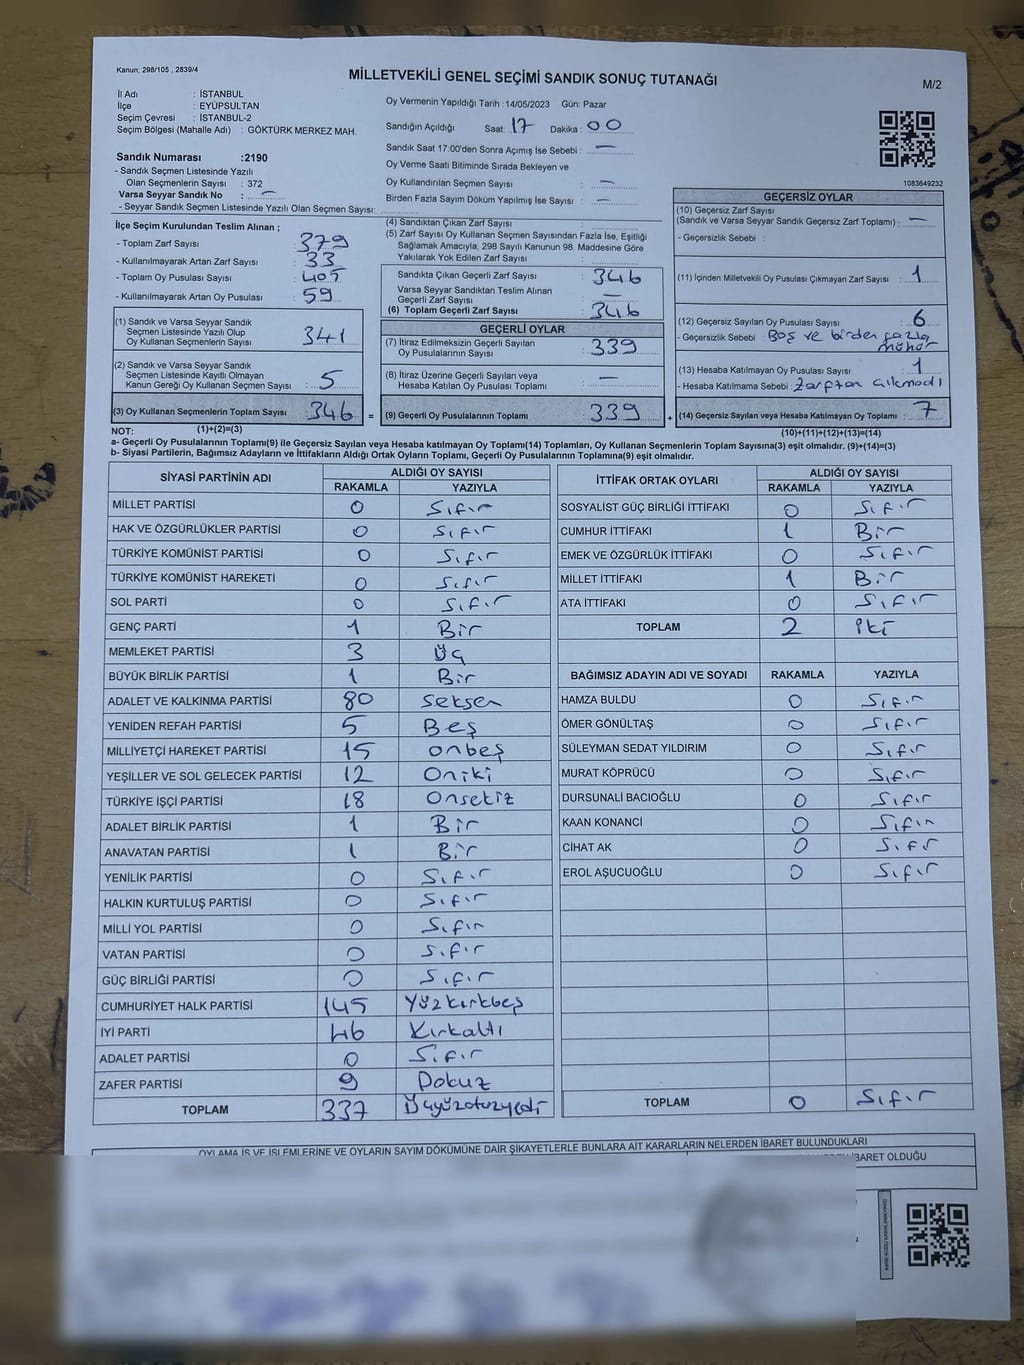 Kanun; 298/105 , 2839/4
MİLLETVEKİLİ GENEL SEÇİMİ SANDIK SONUÇ TUTANAĞI
M/2
İl Adı : İSTANBUL
İlçe : EYÜPSULTAN
Seçim Çevresi : İSTANBUL-2
Seçim Bölgesi (Mahalle Adı) : GÖKTÜRK MERKEZ MAH.
Sandık Numarası :2190
- Sandık Seçmen Listesinde Yazılı
Olan Seçmenlerin Sayısı : 372
Varsa Seyyar Sandık No : —
- Seyyar Sandık Seçmen Listesinde Yazılı Olan Seçmen Sayısı:
Oy Vermenin Yapıldığı Tarih :14/05/2023 Gün: Pazar
Sandığın Açıldığı Saat: 17 Dakika: 00
Sandık Saat 17:00'den Sonra Açımış İse Sebebi : —
Oy Verme Saati Bitiminde Sırada Bekleyen ve
Oy Kullandırılan Seçmen Sayısı : —
Birden Fazla Sayım Döküm Yapılmış İse Sayısı : —
1083649232
İlçe Seçim Kurulundan Teslim Alınan ;
- Toplam Zarf Sayısı : 379
- Kullanılmayarak Artan Zarf Sayısı : 33
- Toplam Oy Pusulası Sayısı : 405
- Kullanılmayarak Artan Oy Pusulası : 59
(1) Sandık ve Varsa Seyyar Sandık
Seçmen Listesinde Yazılı Olup
Oy Kullanan Seçmenlerin Sayısı : 341
(2) Sandık ve Varsa Seyyar Sandık
Seçmen Listesinde Kayıtlı Olmayan
Kanun Gereği Oy Kullanan Seçmen Sayısı : 5
(3) Oy Kullanan Seçmenlerin Toplam Sayısı : 346
(1)+(2)=(3)
(4) Sandıktan Çıkan Zarf Sayısı :
(5) Zarf Sayısı Oy Kullanan Seçmen Sayısından Fazla İse, Eşitliği
Sağlamak Amacıyla; 298 Sayılı Kanunun 98. Maddesine Göre
Yakılarak Yok Edilen Zarf Sayısı :
Sandıkta Çıkan Geçerli Zarf Sayısı : 346
Varsa Seyyar Sandıktan Teslim Alınan
Geçerli Zarf Sayısı : —
(6) Toplam Geçerli Zarf Sayısı : 346
GEÇERLİ OYLAR
(7) İtiraz Edilmeksizin Geçerli Sayılan
Oy Pusulalarının Sayısı : 339
(8) İtiraz Üzerine Geçerli Sayılan veya
Hesaba Katılan Oy Pusulası Toplamı : —
= (9) Geçerli Oy Pusulalarının Toplamı : 339 +
GEÇERSİZ OYLAR
(10) Geçersiz Zarf Sayısı
(Sandık ve Varsa Seyyar Sandık Geçersiz Zarf Toplamı) : —
- Geçersizlik Sebebi :
(11) İçinden Milletvekili Oy Pusulası Çıkmayan Zarf Sayısı : 1
(12) Geçersiz Sayılan Oy Pusulası Sayısı : 6
- Geçersizlik Sebebi : Boş ve birden fazla
mühür
(13) Hesaba Katılmayan Oy Pusulası Sayısı : 1
- Hesaba Katılmama Sebebi : Zarftan çıkmadı
(14) Geçersiz Sayılan veya Hesaba Katılmayan Oy Toplamı : 7
(10)+(11)+(12)+(13)=(14)
NOT:
a- Geçerli Oy Pusulalarının Toplamı(9) ile Geçersiz Sayılan veya Hesaba katılmayan Oy Toplamı(14) Toplamları, Oy Kullanan Seçmenlerin Toplam Sayısına(3) eşit olmalıdır. (9)+(14)=(3)
b- Siyasi Partilerin, Bağımsız Adayların ve İttifakların Aldığı Ortak Oyların Toplamı, Geçerli Oy Pusulalarının Toplamına(9) eşit olmalıdır.
SİYASİ PARTİNİN ADI ALDIĞI OY SAYISI
RAKAMLA YAZIYLA
MİLLET PARTİSİ 0 Sıfır
HAK VE ÖZGÜRLÜKLER PARTİSİ 0 Sıfır
TÜRKİYE KOMÜNİST PARTİSİ 0 Sıfır
TÜRKİYE KOMÜNİST HAREKETİ 0 Sıfır
SOL PARTİ 0 Sıfır
GENÇ PARTİ 1 Bir
MEMLEKET PARTİSİ 3 Üç
BÜYÜK BİRLİK PARTİSİ 1 Bir
ADALET VE KALKINMA PARTİSİ 80 Seksen
YENİDEN REFAH PARTİSİ 5 Beş
MİLLİYETÇİ HAREKET PARTİSİ 15 Onbeş
YEŞİLLER VE SOL GELECEK PARTİSİ 12 Oniki
TÜRKİYE İŞÇİ PARTİSİ 18 Onsekiz
ADALET BİRLİK PARTİSİ 1 Bir
ANAVATAN PARTİSİ 1 Bir
YENİLİK PARTİSİ 0 Sıfır
HALKIN KURTULUŞ PARTİSİ 0 Sıfır
MİLLİ YOL PARTİSİ 0 Sıfır
VATAN PARTİSİ 0 Sıfır
GÜÇ BİRLİĞİ PARTİSİ 0 Sıfır
CUMHURİYET HALK PARTİSİ 145 Yüzkırkbeş
İYİ PARTİ 46 Kırkaltı
ADALET PARTİSİ 0 Sıfır
ZAFER PARTİSİ 9 Dokuz
TOPLAM 337 Üçyüzotuzyedi
İTTİFAK ORTAK OYLARI ALDIĞI OY SAYISI
RAKAMLA YAZIYLA
SOSYALİST GÜÇ BİRLİĞİ İTTİFAKI 0 Sıfır
CUMHUR İTTİFAKI 1 Bir
EMEK VE ÖZGÜRLÜK İTTİFAKI 0 Sıfır
MİLLET İTTİFAKI 1 Bir
ATA İTTİFAKI 0 Sıfır
TOPLAM 2 İki
BAĞIMSIZ ADAYIN ADI VE SOYADI RAKAMLA YAZIYLA
HAMZA BULDU 0 Sıfır
ÖMER GÖNÜLTAŞ 0 Sıfır
SÜLEYMAN SEDAT YILDIRIM 0 Sıfır
MURAT KÖPRÜCÜ 0 Sıfır
DURSUNALİ BACIOĞLU 0 Sıfır
KAAN KONANCI 0 Sıfır
CİHAT AK 0 Sıfır
EROL AŞUCUOĞLU 0 Sıfır
TOPLAM 0 Sıfır
OYLAMA İŞ VE İŞLEMLERİNE VE OYLARIN SAYIM DÖKÜMÜNE DAİR ŞİKAYETLERLE BUNLARA AİT KARARLARIN NELERDEN İBARET BULUNDUKLARI
İBARET OLDUĞU